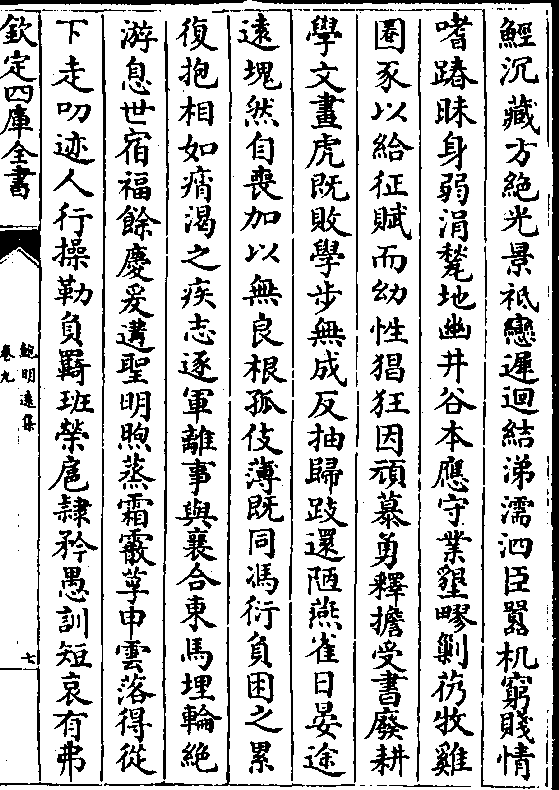 鯹沉藏方絶光景祗戀遲迴結涕濡泗臣嚚杌窮賤情
嗜踳昧身弱涓甃地幽井谷本應守業墾畛剿芿牧雞
圈豕以給征賦而幼性猖狂因頑慕勇釋擔受書廢耕
學文畫虎既敗學步無成反抽歸跂還陋燕雀日晏途
遠塊然自喪加以無良根孤伎薄既同馮衍負困之累
復抱相如痟渴之疾志逐軍離事與衰合束馬埋輪絶
游息世宿福餘慶爰遘聖明煦蒸霜霰莩申雲落得從
下走叨迹人行操勒負羇班榮扈隸矜愚訓短哀有弗
欽定四庫全書
鮑明遠集
卷九
七